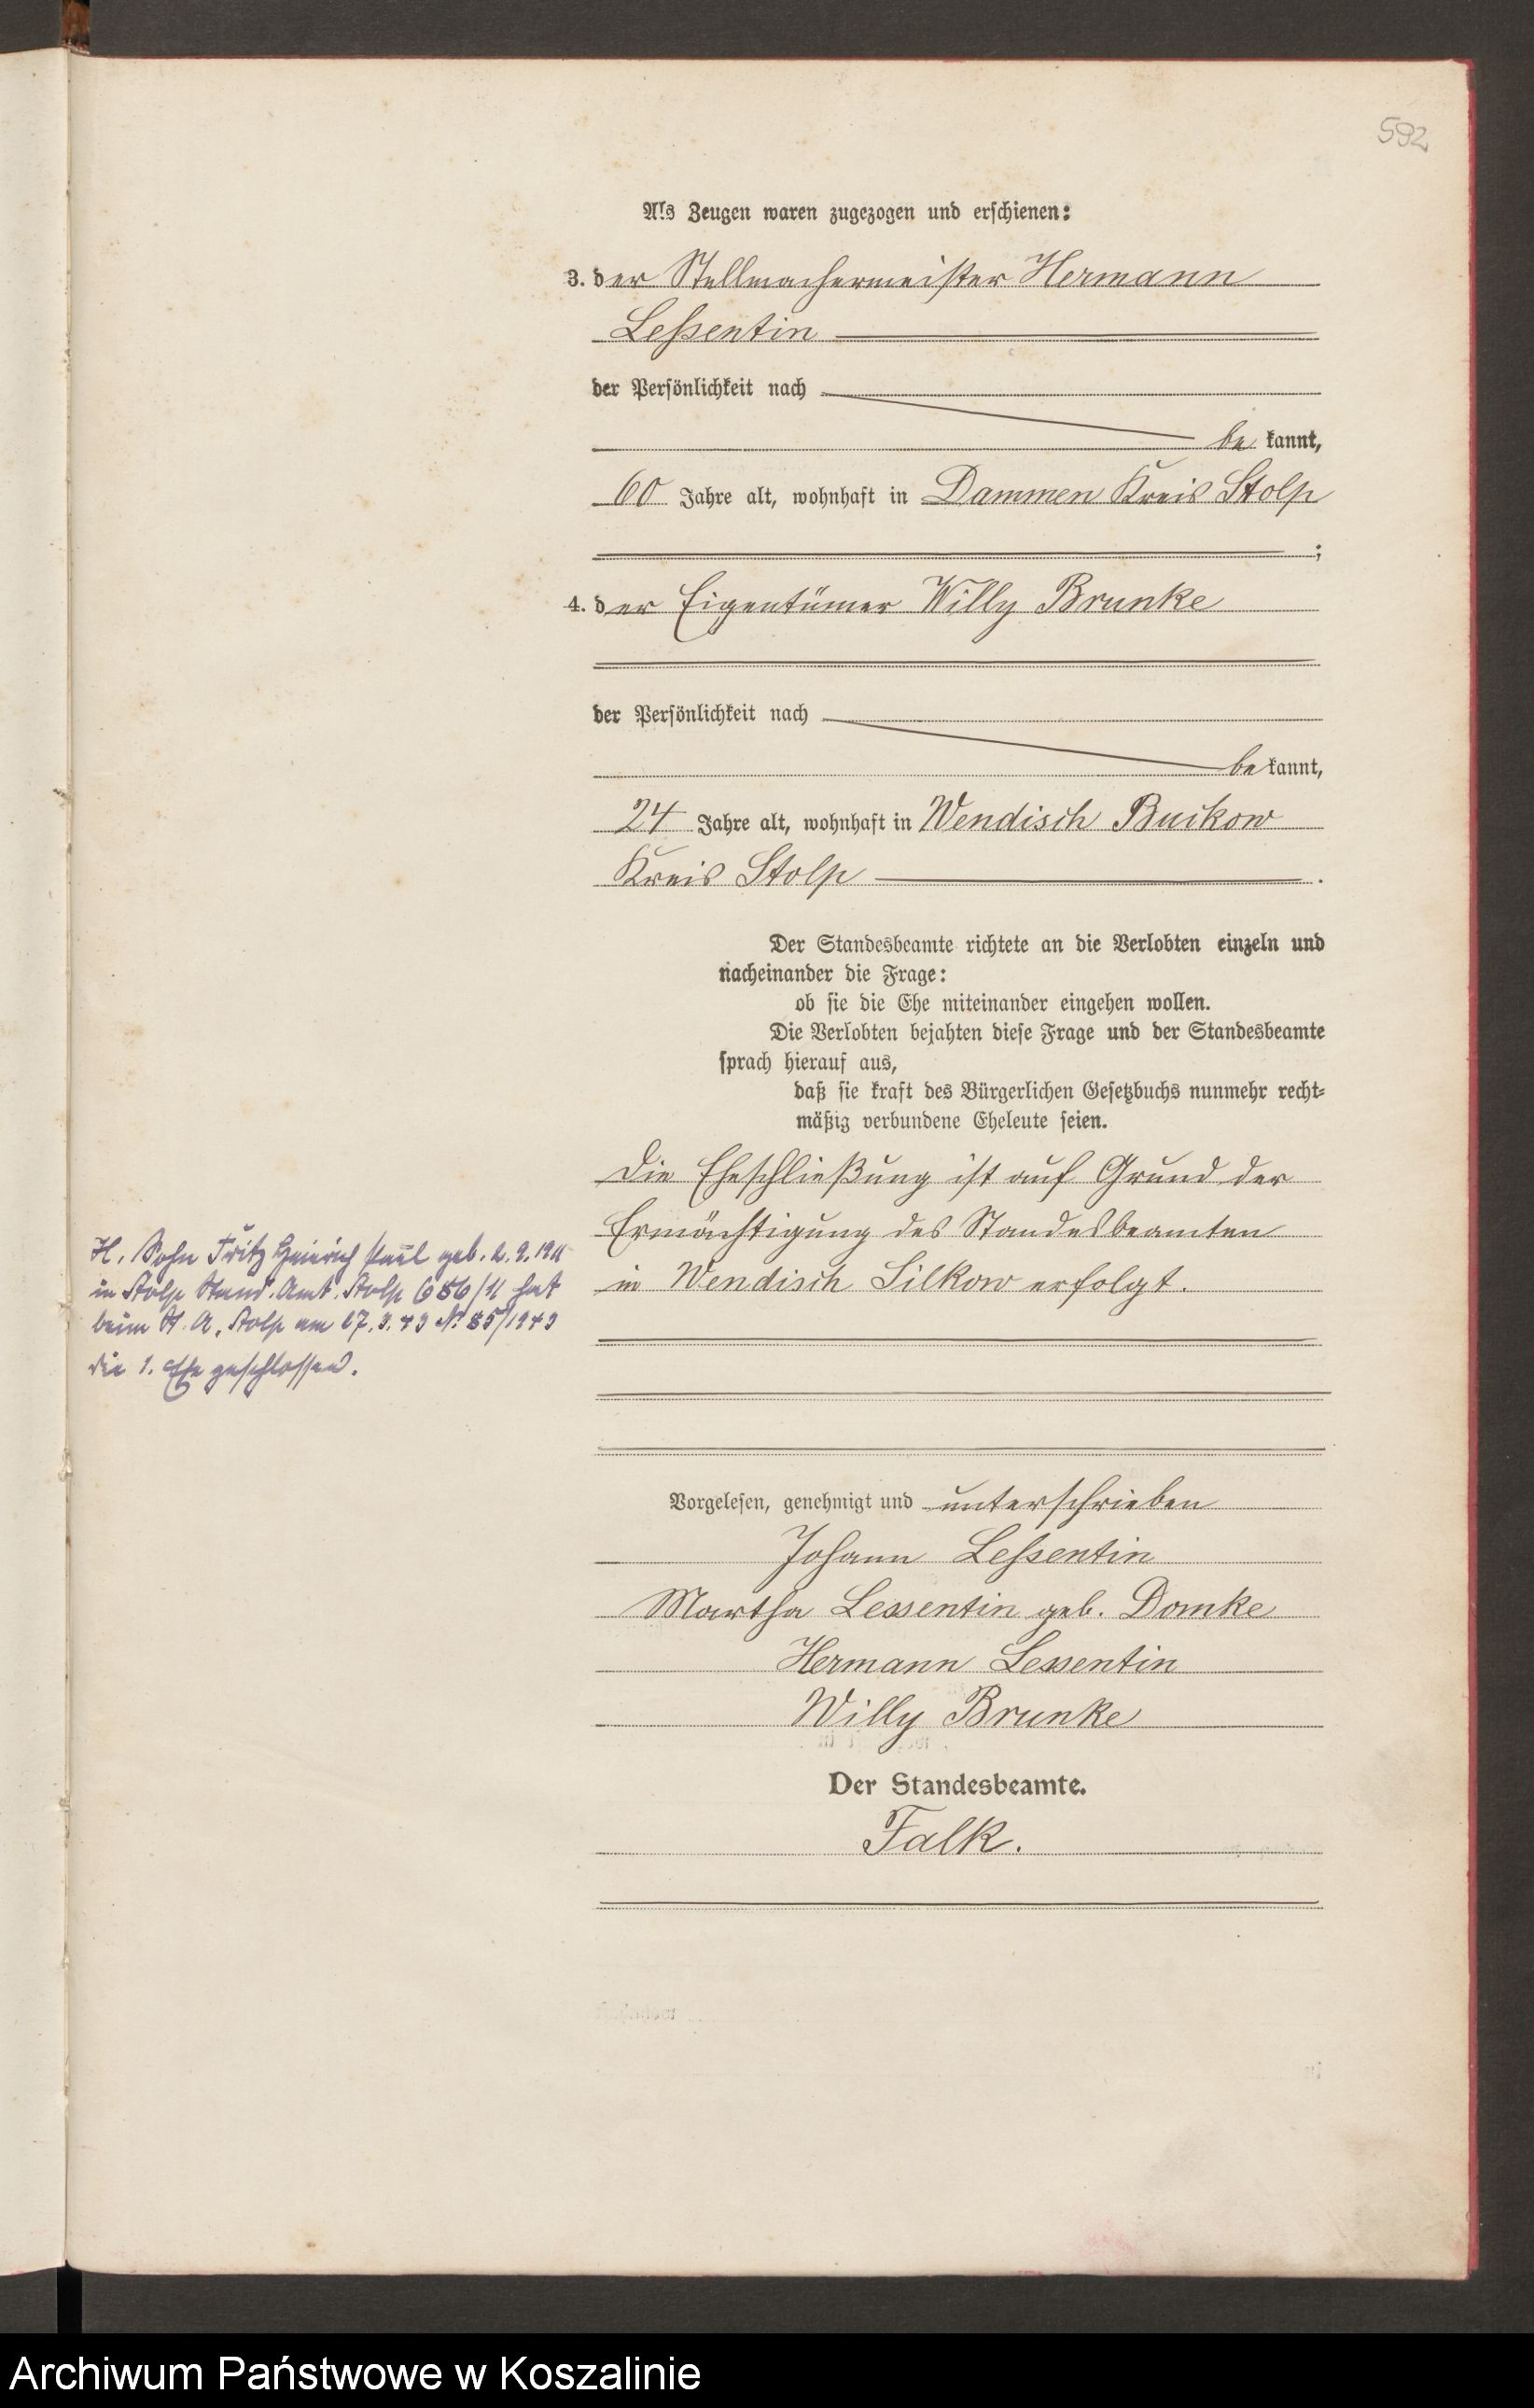 592
Als Zeugen waren zugezogen und erschienen:
3. der Stellmachermeister Hermann
Leßentin
der Persönlichkeit nach
be kannt,
60 Jahre alt, wohnhaft in Dammen Kreis Stolp
;
4. der Eigentümer Willy Brunke
der Persönlichkeit nach
be kannt,
24 Jahre alt, wohnhaft in Wendisch Buckow
Kreis Stolp .
Der Standesbeamte richtete an die Verlobten einzeln und
nacheinander die Frage:
ob sie die Ehe miteinander eingehen wollen.
Die Verlobten bejahten diese Frage und der Standesbeamte
sprach hierauf aus,
daß sie kraft des Bürgerlichen Gesetzbuchs nunmehr recht-
mäßig verbundene Eheleute seien.
Die Eheschließung ist auf Grund der
Ermächtigung des Standesbeamten
in Wendisch Silkow erfolgt.
H. Sohn Fritz Heinrich Paul geb. 2.9.1911
in Stolp Stand. Amt. Stolp 656/11 hat
beim St. A. Stolp am 27.3.43 № 85/1943
die 1. Ehe geschlossen.
Vorgelesen, genehmigt und unterschrieben
Johann Leßentin
Martha Lessentin geb. Domke
Hermann Lessentin
Willy Brunke
Der Standesbeamte.
Falk.
Archiwum Państwowe w Koszalinie